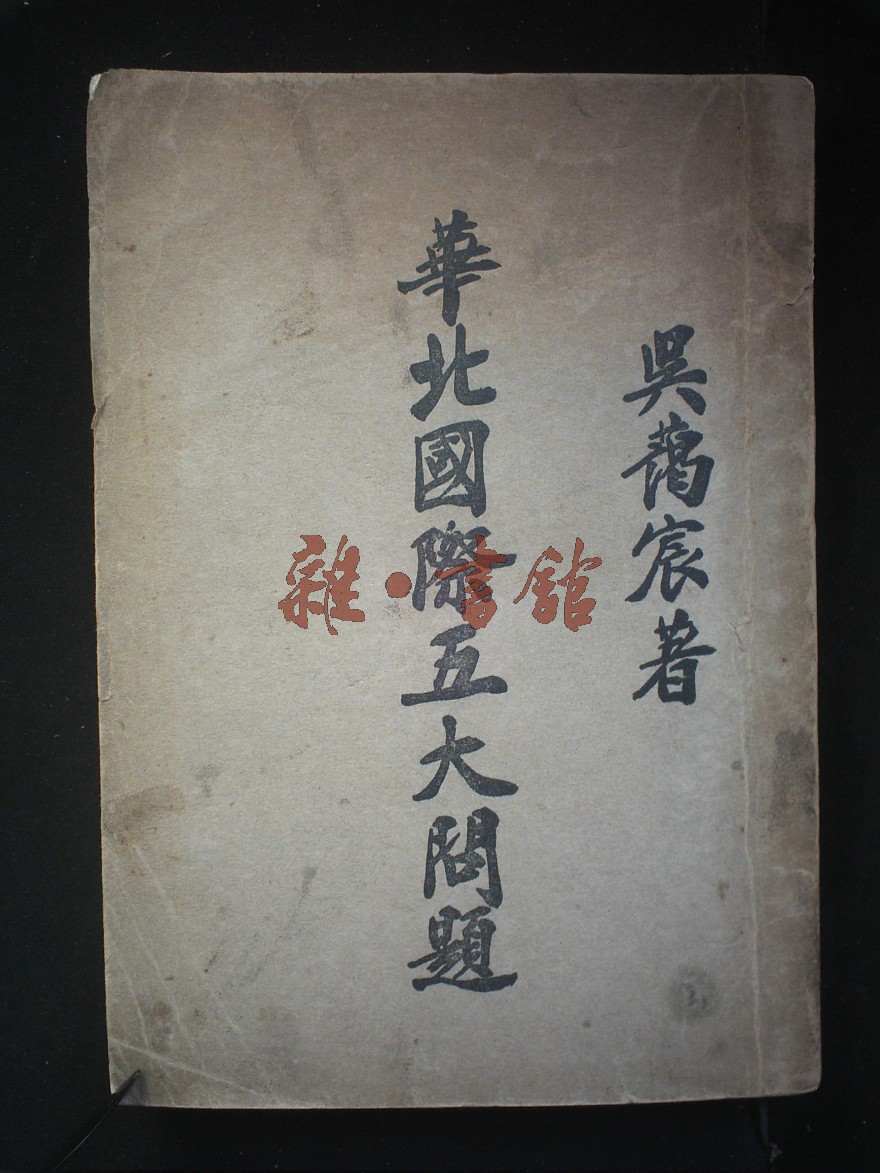 吳藹宸著
華北國際五大問題
雜·書館